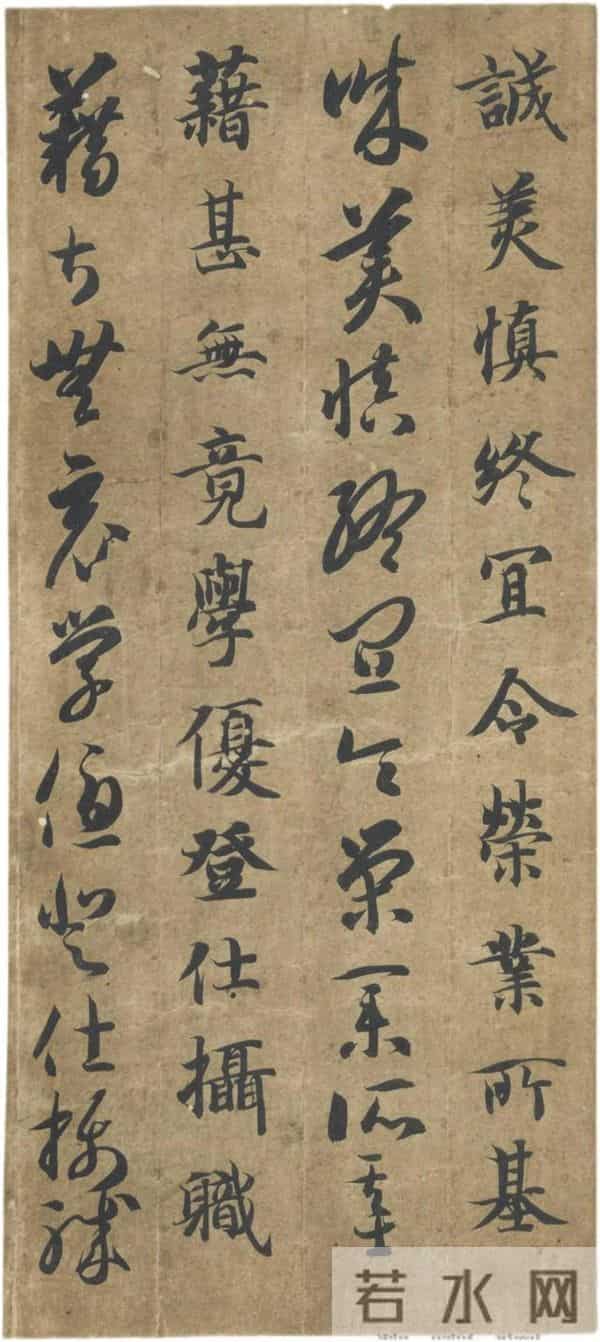 誠美慎終宜令榮業所基
誠美慎終宜令榮業所基
藉甚無竟學優登仕攝職
藉甚無竟學優登仕攝職
若水网